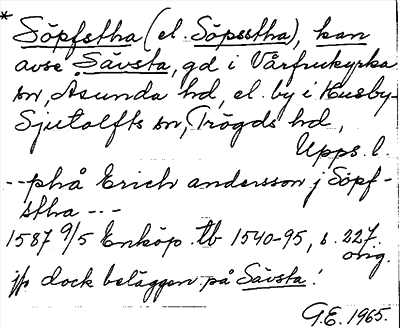 * Söpfstha (el. Söpsstha), kan
avse Sävsta, gd i Vårfrukyrka
sn, Åsunda hd, el. by i Husby-
Sjutolfts sn, Trögds hd,
Upps. l.
-- phå Erich andersson j Söpf-
stha ---
1587 9/5 Enköp. tb 1540-95, s. 227.
orig.
jfr dock beläggen på Sävsta!
G.E. 1965.